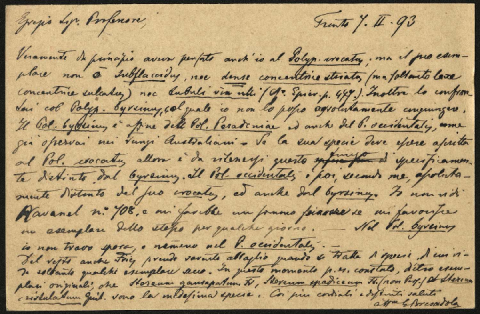 Egregio Sigr. Professore, Trento 7. II. 93
Veramente da principio avevo pensato anch'io al Polyp. crocatus, ma il suo esem-
plare non è subflaccidus, nec dense concentrice striatus (ma soltanto laxe
concentrice sulcatus) nec Inoltre lo confron-
tai col Polyp. byrsinus, col quale io non lo posso assolutamente congiungere.
Il Pol. byrsinus è affine del Pol. Peradeniae ed anche del P. occidentalis, come
già osservai nei Funghi Australiani. – Se la sua specie deve essere
al Pol. crocatus, allora è da ritenersi questo specificamente
distinto dal byrsinus. Il Pol. occidentalis è poi, secondo me, assoluta-
mente distinto dal suo crocatus, ed anche dal byrsinus. Io non vidi
Ravenel n. 708, e mi farebbe un sommo se mi favorisse
un esemplare dello stesso per qualche giorno. — Nel Pol. byrsinus
io non trovo spore, e nemmeno nel P. occidentalis.
Del resto anche Fries prende varie quando si tratta di specie, di cui vi-
de soltanto qualche esemplare secco. In questo momento p. es. constato, dietro esem-
plari originali, che Stereum gausapatum Fr., Stereum spadiceum Fr. (non Pers.) et Stereum
cristulatum Quél. sono la medesima specie. Coi più cordiali e distinti saluti
G. Bresadola